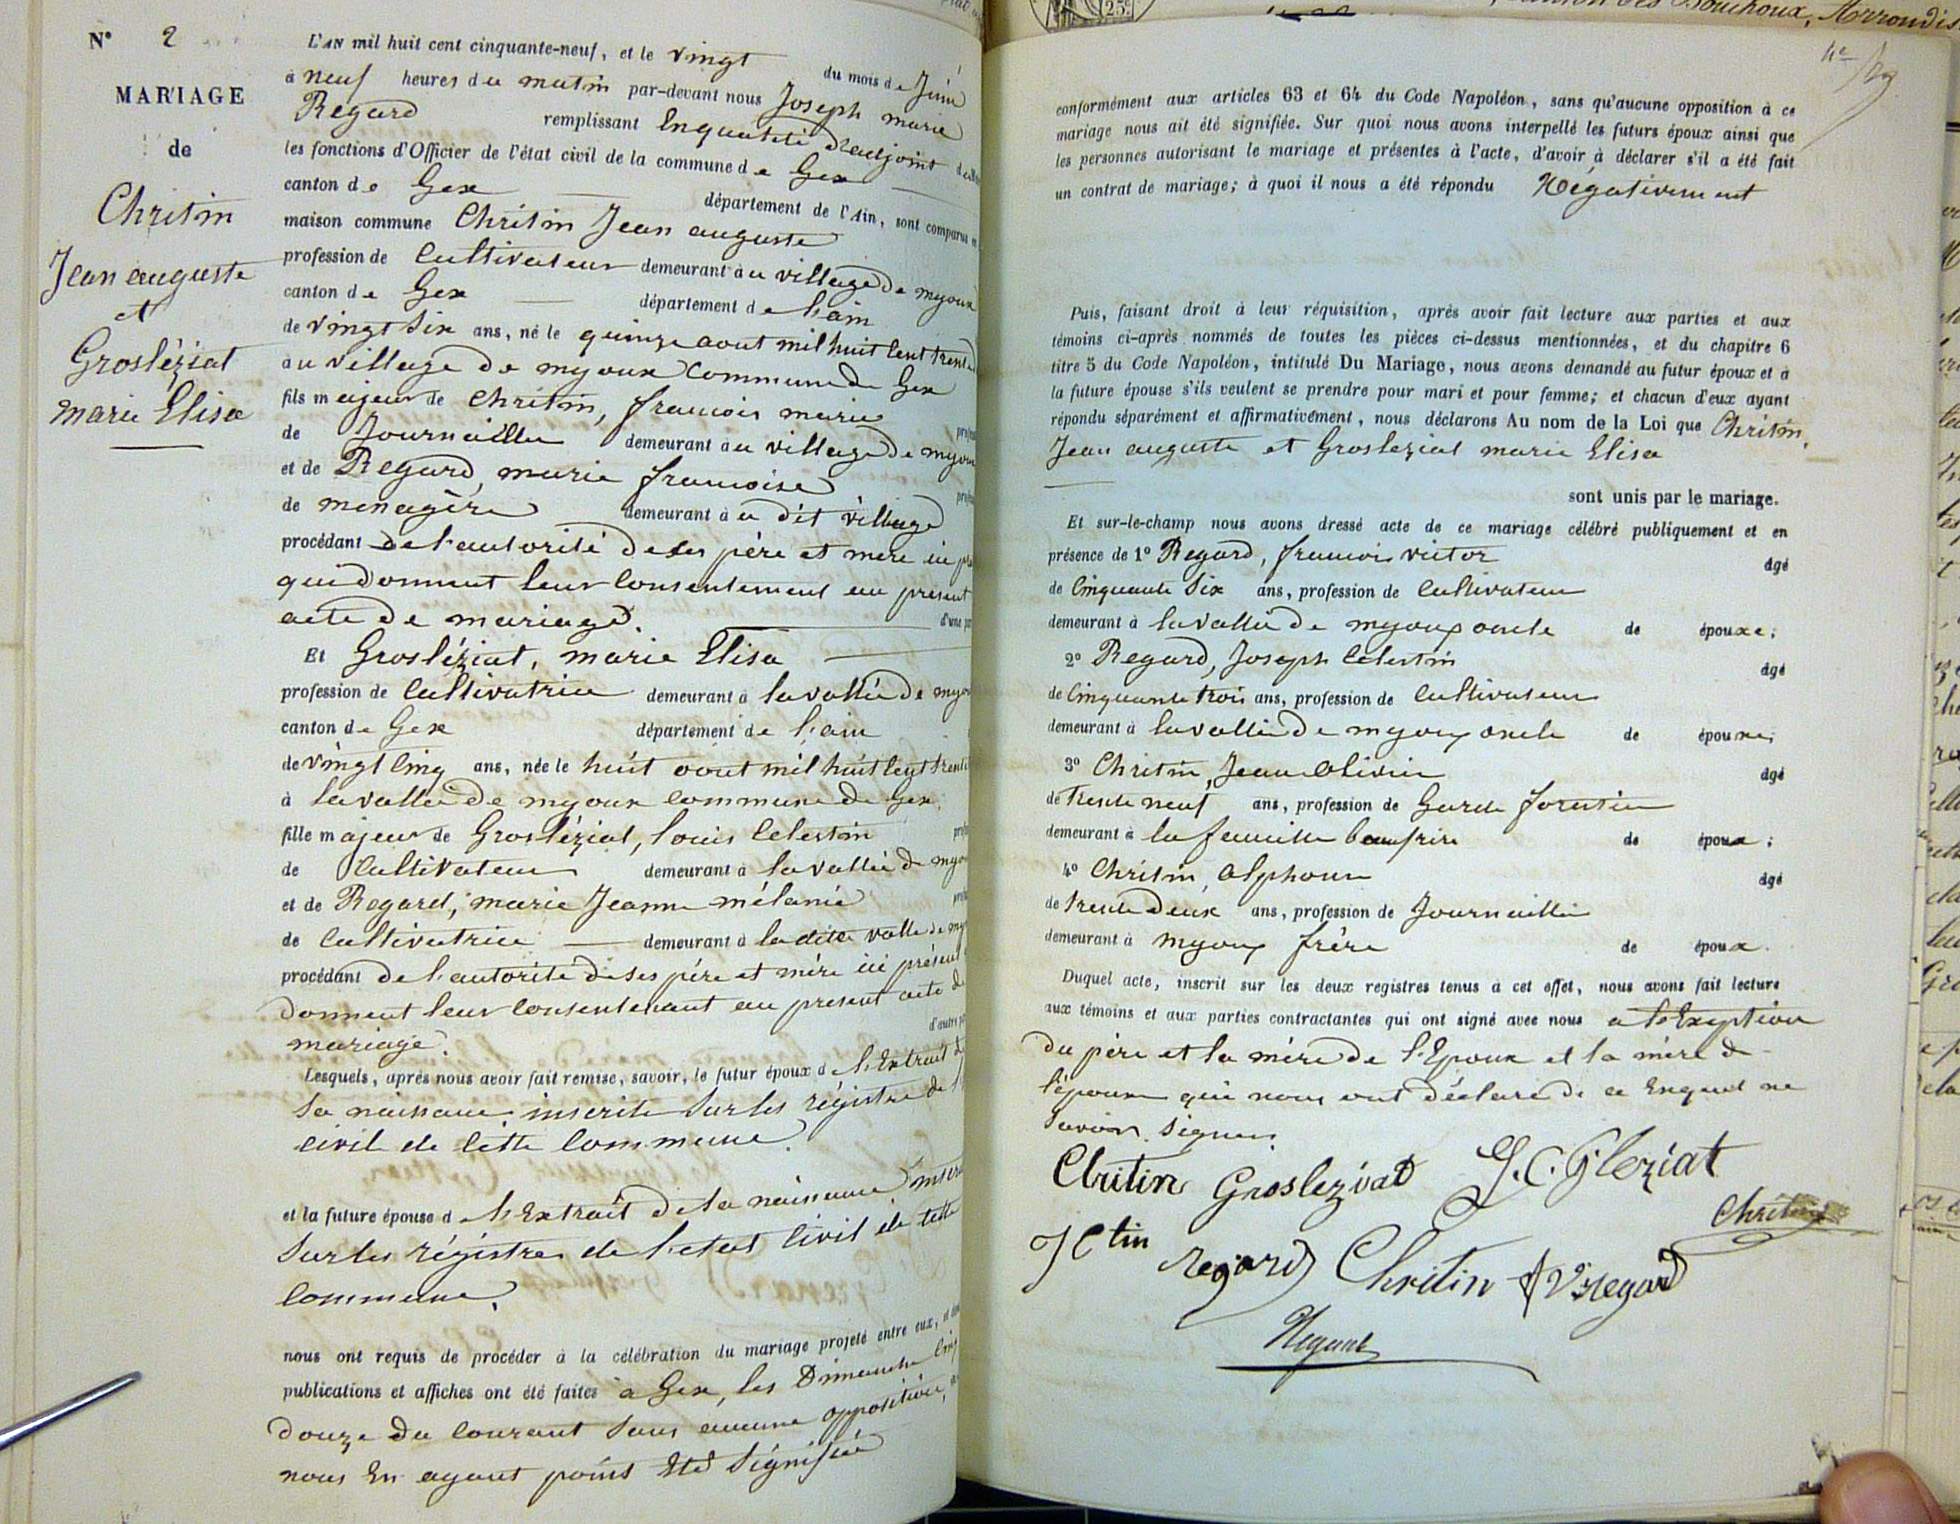 N° 2
MARIAGE
de
Chritin
Jean auguste
et
Grosléziat
marie Elisa
L'AN mil huit cent cinquante-neuf, et le vingt du mois de Juin
à neuf heures du matin par-devant nous Joseph marie
Regard remplissant Enqualité d'adjoint
les fonctions d'Officier de l'état civil de la commune de Gex
canton de Gex département de l'Ain, sont comparus en
maison commune Chritin Jean auguste
profession de Cultivateur demeurant au village de myoux
canton de Gex département de l'ain
de vingt Six ans, né le quinze aout mil huit Cent trente
au village de myoux Commune de Gex
fils majeur de Chritin, francois marie
de Journaillier demeurant au village de myoux
et de Regard, marie francoise
de menagère demeurant au dit village
procédant de l'autorité de ses père et mere ici
qui donnent leur Consentement au présent
acte de mariage. d'une part
Et Grosléziat, marie Elisa
profession de Cultivatrice demeurant à la vallée de myoux
canton de Gex département de l'ain
de vingt Cinq ans, née le huit aout mil huit Cent trente
à la vallée de myoux Commune de Gex,
fille majeur de Grosléziat, louis Celestin
de Cultivateur demeurant à la vallée de myoux
et de Regard, marie Jeanne mélanie
de Cultivatrice demeurant à la dite vallé de
procédant de l'autorité de ses père et mére ici présent
donnent leur Consentement au present acte de
mariage. d'autre part
Lesquels, après nous avoir fait remise, savoir, le futur époux de l'Extrait de
Sa naissance inscrite Sur les régistre de l'
civil de Cette Commune.
et la future épouse de l'Extrait de Sa naissance
Sur les régistres de l'etat Civil de Cette
Commune.
nous ont requis de procéder à la célébration du mariage projeté entre eux, et
publications et affiches ont été faites à Gex, les Dimanche Cinq
douze du Courant Sans aucune opposition,
nous En ayant point Eté Signifiée
conformément aux articles 63 et 64 du Code Napoléon, sans qu'aucune opposition à ce
mariage nous ait été signifiée. Sur quoi nous avons interpellé les futurs époux ainsi que
les personnes autorisant le mariage et présentes à l'acte, d'avoir à déclarer s'il a été fait
un contrat de mariage; à quoi il nous a été répondu Négativement
Puis, faisant droit à leur réquisition, après avoir fait lecture aux parties et aux
témoins ci-après nommés de toutes les pièces ci-dessus mentionnées, et du chapitre 6
titre 5 du Code Napoléon, intitulé Du Mariage, nous avons demandé au futur époux et à
la future épouse s'ils veulent se prendre pour mari et pour femme; et chacun d'eux ayant
répondu séparément et affirmativement, nous déclarons Au nom de la Loi que Chritin,
Jean auguste et Grosleziat marie Elisa
sont unis par le mariage.
Et sur-le-champ nous avons dressé acte de ce mariage célébré publiquement et en
présence de 1° Regard, francois victor âgé
de Cinquante Six ans, profession de Cultivateur
demeurant à la vallée de myoux oncle de épouxe;
2° Regard, Joseph Celestin âgé
de Cinquante trois ans, profession de Cultivateur
demeurant à la vallée de myoux oncle de épouxe;
3° Chritin, Jean Olivier âgé
de trente neuf ans, profession de Garde forestier
demeurant à la faucille beaufrère de époux;
4° Chritin, alphonse âgé
de trente deux ans, profession de Journaillier
demeurant à myoux frère de époux.
Duquel acte, inscrit sur les deux registres tenus à cet effet, nous avons fait lecture
aux témoins et aux parties contractantes qui ont signé avec nous a l'Exeption
du père et la mère de l'Epoux et la mère de
l'épouse qui nous ont déclaré de ce Enquet ne
Savoir Signer.
Chritin Grosleziat J. C. G'leziat
Chritin
J Ctin Regard Chritin f V regard
Regard